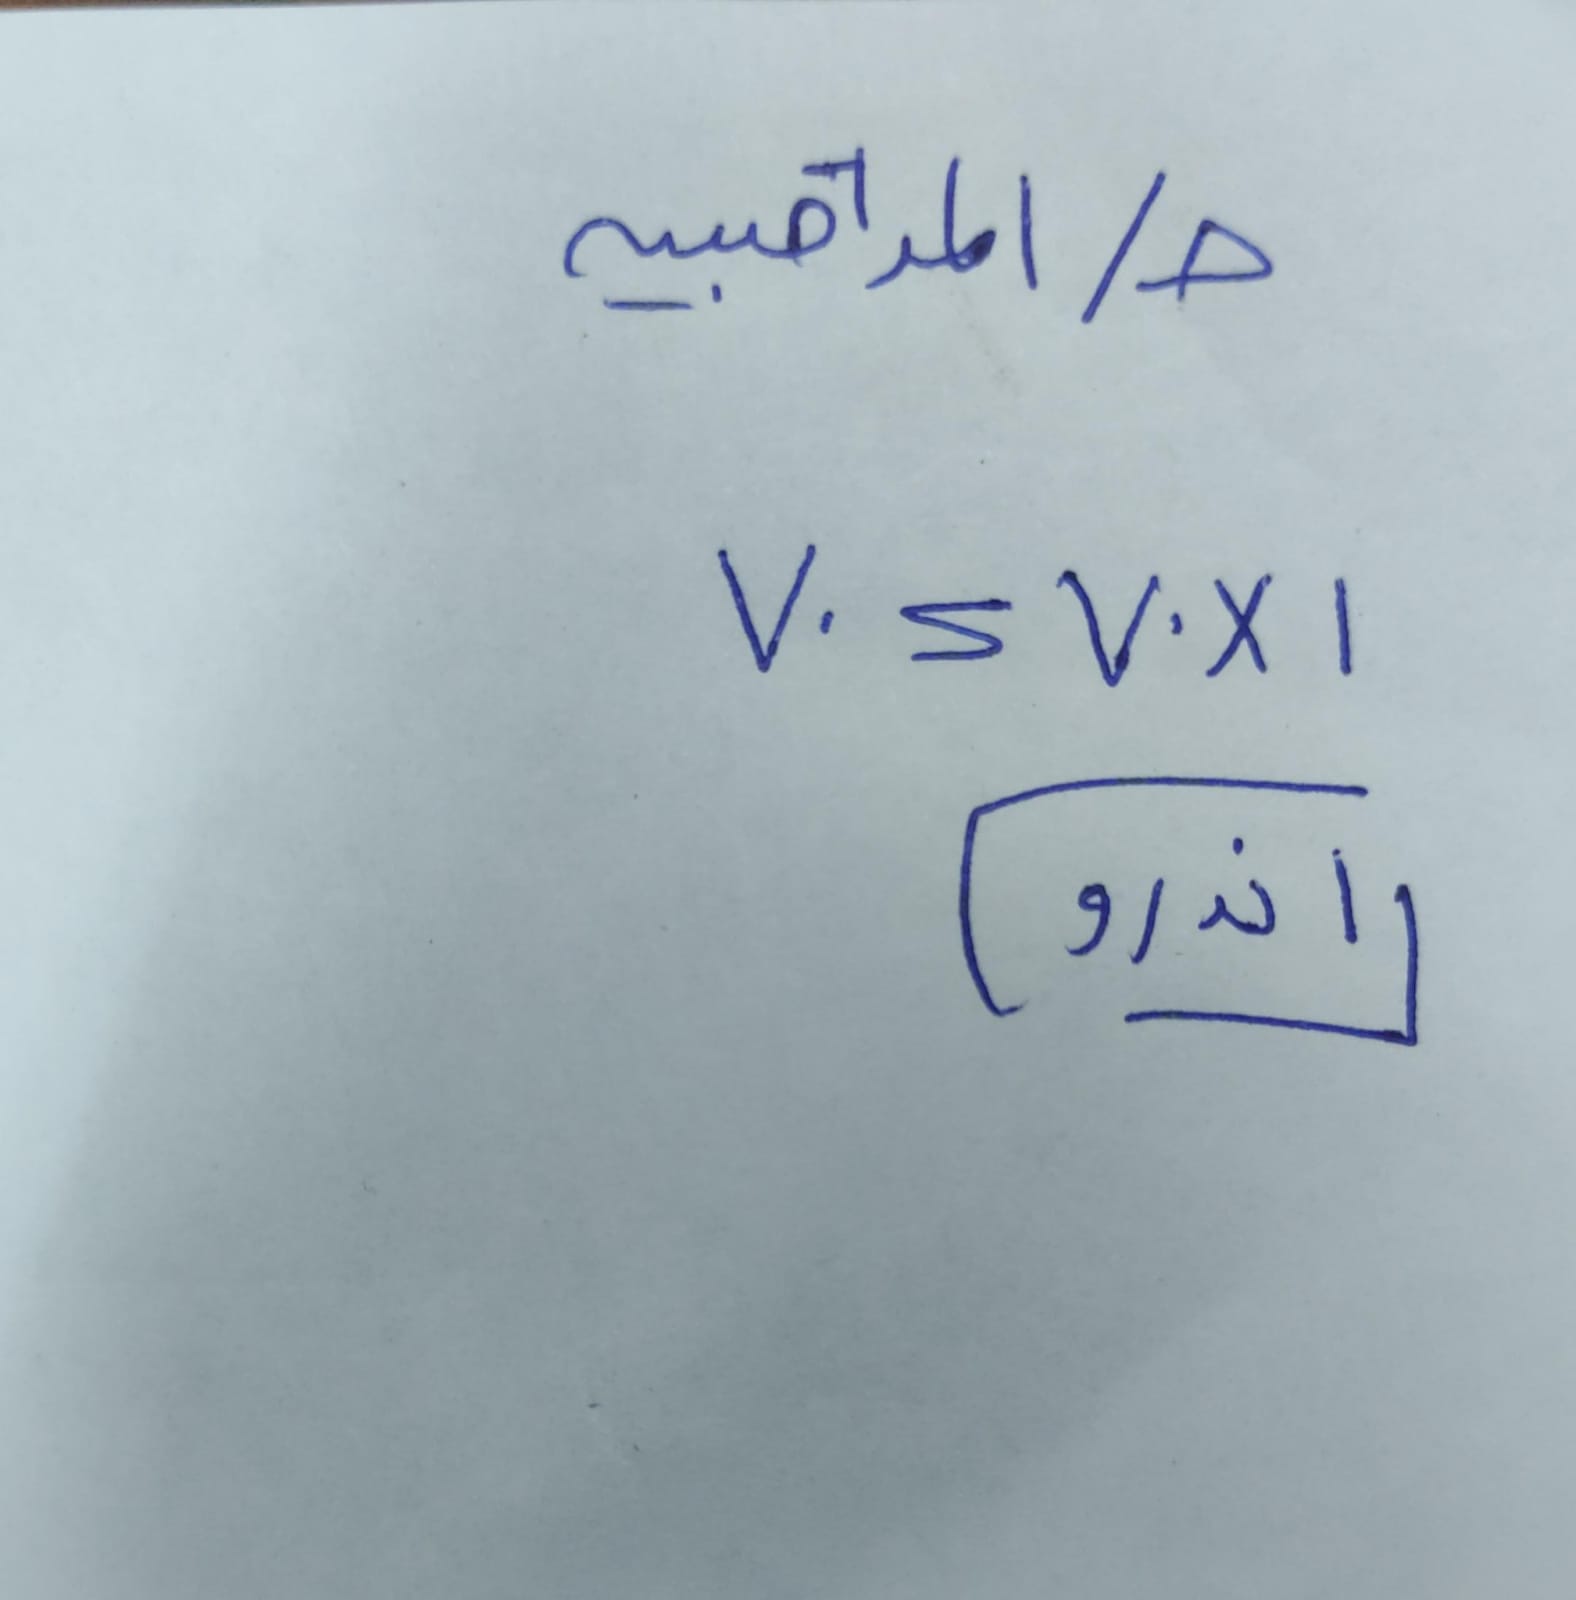 ح/ المراقبيه
١ × ٧٠ = ٧٠
اندرو